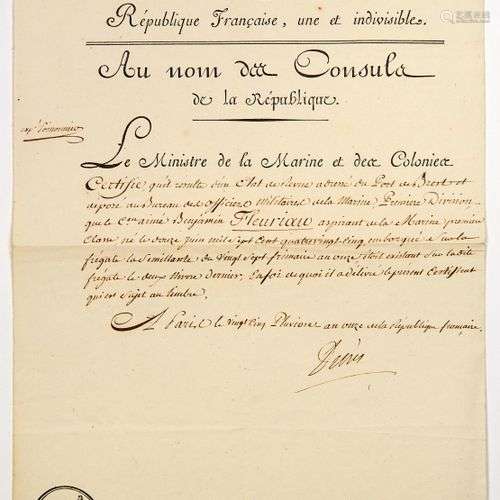 République Française, une et indivisible.
Au nom des Consuls
de la République.
Le Ministre de la Marine et des Colonies
Certifie qu'il résulte d'un Etat de Revue adressé du Port de Brest et
déposé au Bureau des officiers militaires de la Marine Première Division
que le Cen aimé Benjamin Fleuriau aspirant de la Marine première
classe né le onze juin mil sept cent quatrevingt cinq embarqué sur la
frégate la Semillante du vingt sept frimaire an onze étoit existant sur la dite
frégate le deux Nivose dernier. En foi de quoi il a délivré le présent Certificat
qui est sujet au timbre.
A Paris le vingt cinq Pluviose an onze de la République française.